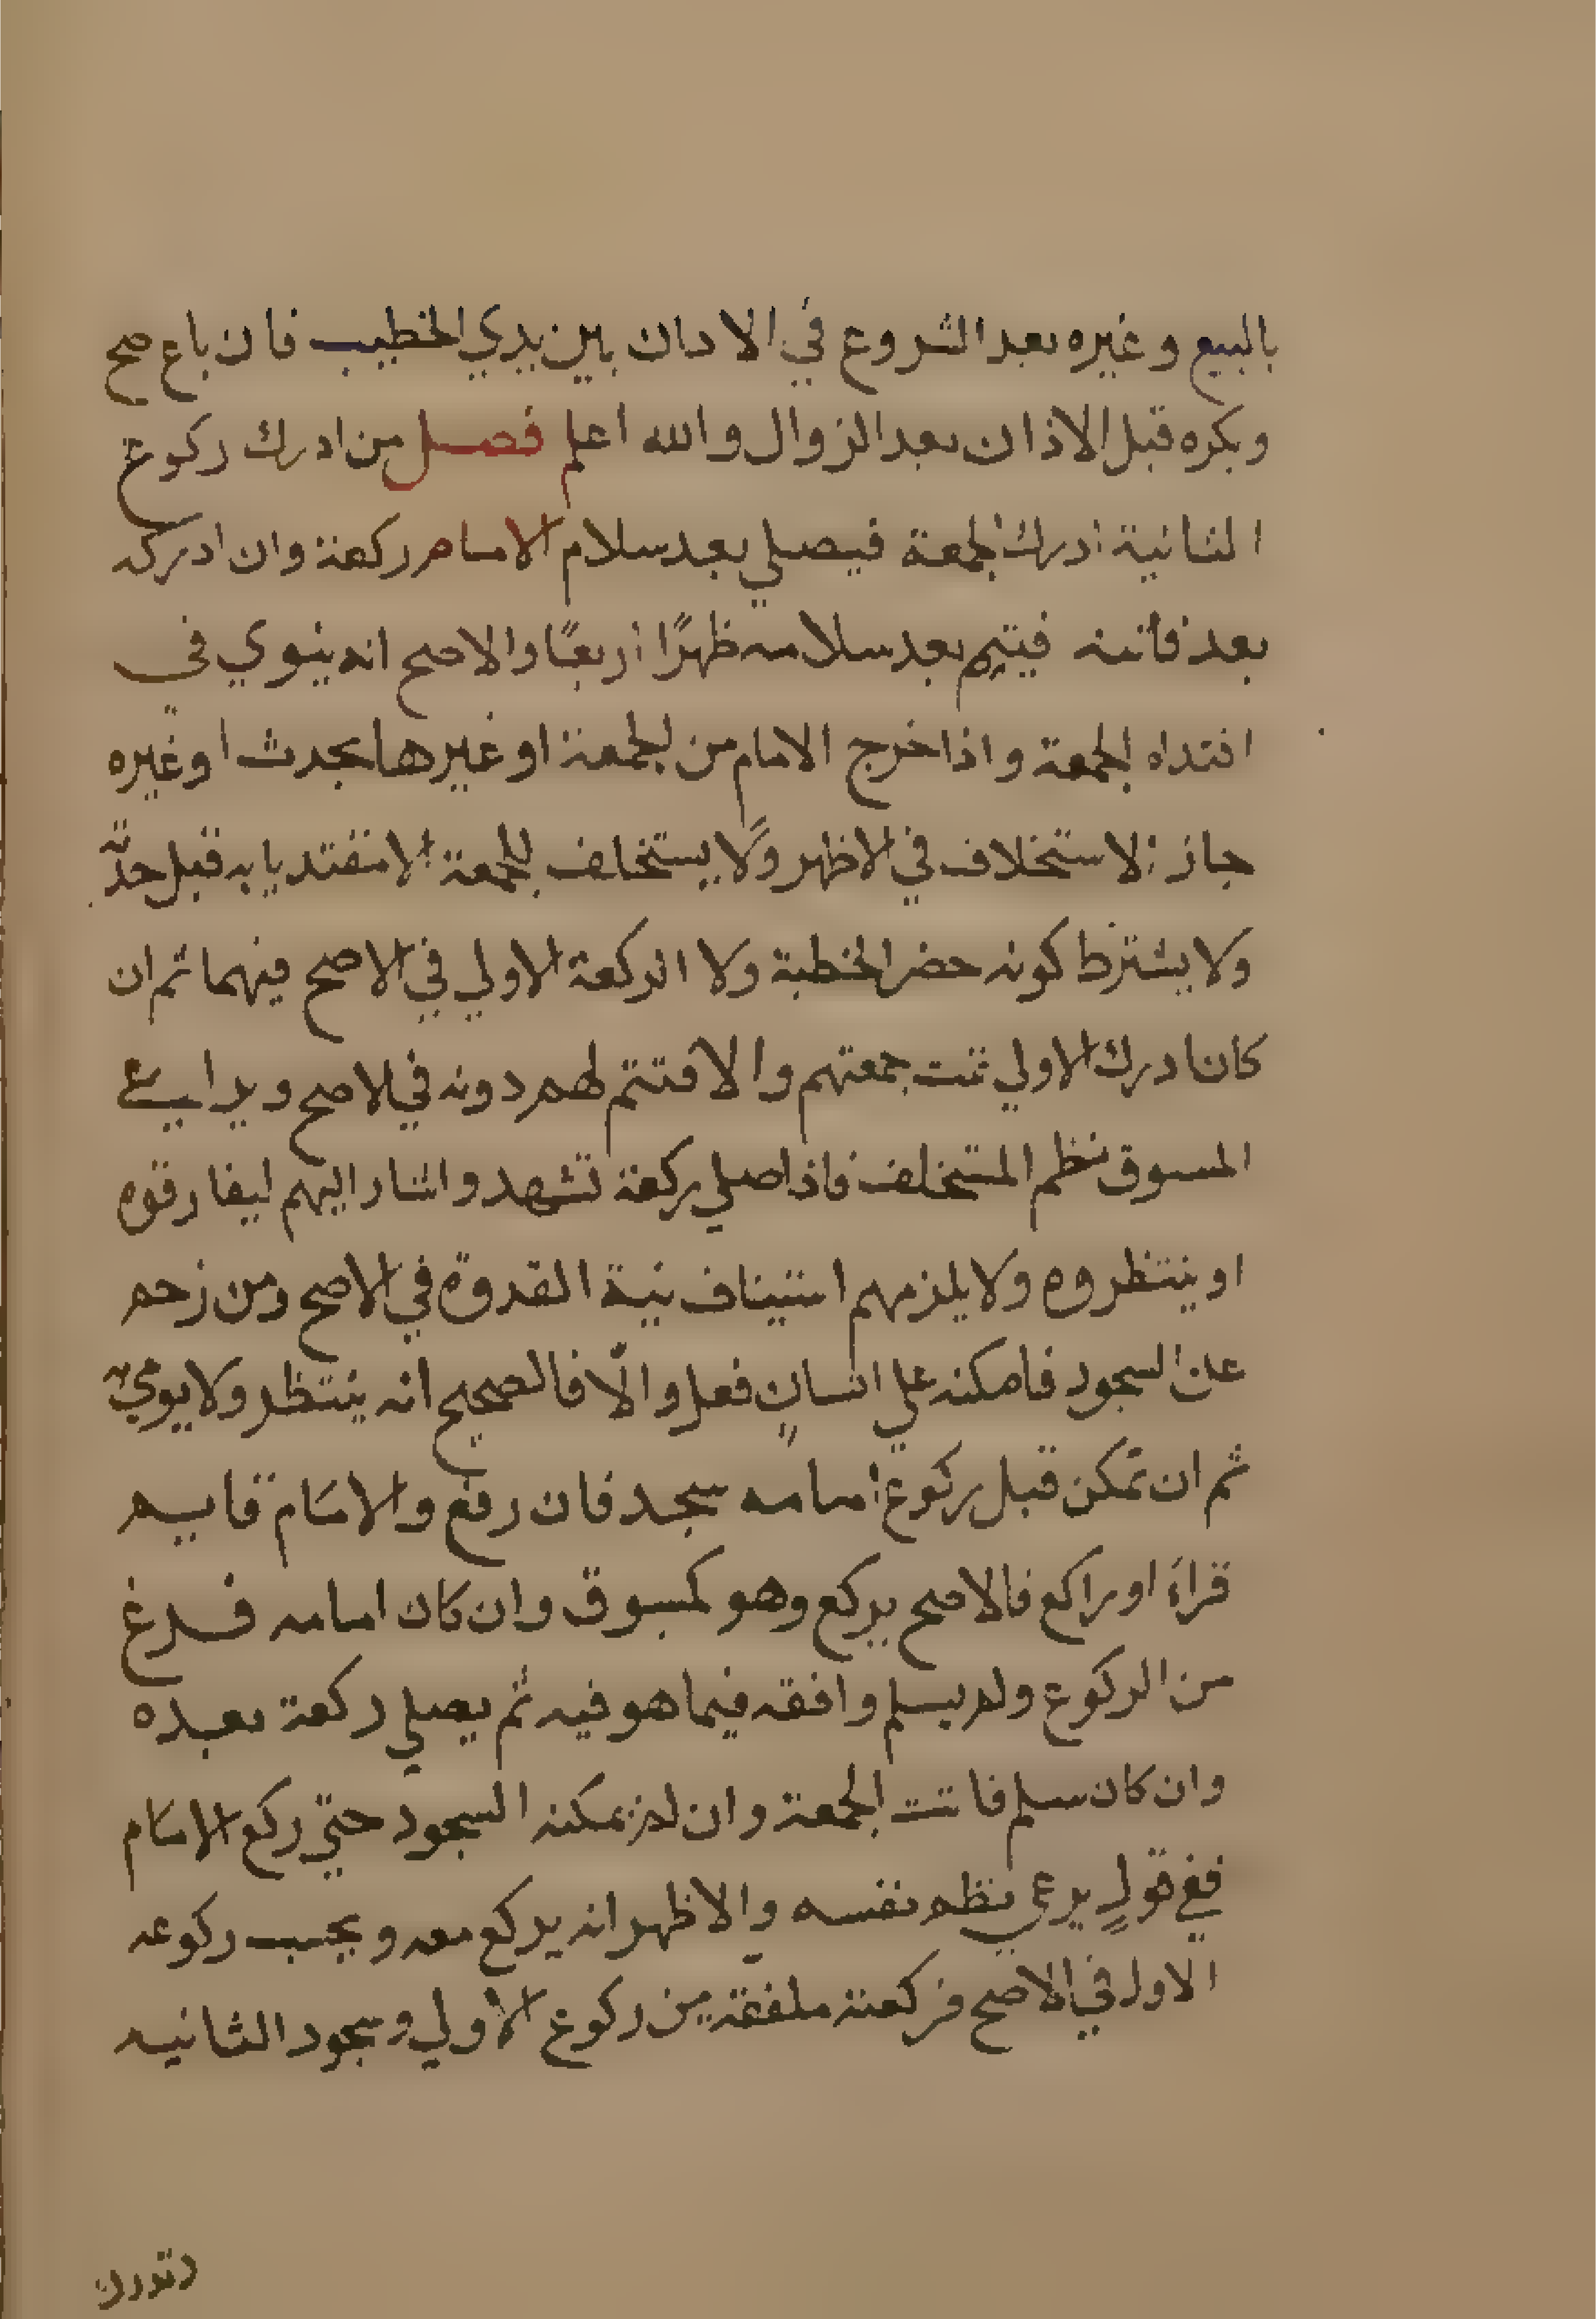 بالبيع وغيره بعد الشروع في الاذان بين يدي الخطيب فان باع صح
ويكره قبل الاذان بعد الزوال والله اعلم فصل من ادرك ركوع
الثانية ادرك الجمعة فيصلي بعد سلام الامام ركعة وان ادركه
بعد فاتته فيتم بعد سلامه ظهرًا اربعًا والاصح انه ينوي في
اقتداه الجمعة واذا خرج الامام من الجمعة او غيرها بحدث او غيره
جاز الاستخلاف في الاظهر ولا يستخلف للجمعة الا مقتديا به قبل حدثه
ولا يشترط كونه حضر الخطبة ولا الركعة الاولي في الاصح فيهما ثم ان
كان ادرك الاولي تمت جمعتهم والا فتتم لهم دونه في الاصح ويراعي
المسبوق نظم المستخلف فاذا صلي ركعة تشهد واشار اليهم ليفارقوه
او ينتظروه ولا يلزمهم استيناف نية القدوة في الاصح ومن زحم
عن السجود فامكنه علي انسانٍ فعل والّا فالصحيح انه ينتظر ولا يومي
ثم ان تمكن قبل ركوع امامه سجد فان رفع والامام قايم
قراة او راكع فالاصح يركع وهو كمسبوق وان كان امامه فرغ
من الركوع ولم يسلم وافقه فيما هو فيه ثم يصلي ركعة بعده
وان كان سلم فاتت الجمعة وان لم يمكنه السجود حتي ركع الامام
ففي قولٍ يرعي نظم نفسه والاظهر انه يركع معه ويحسب ركوعه
الاول في الاصح فركعته ملفقة من ركوع الاولي وسجود الثانيه